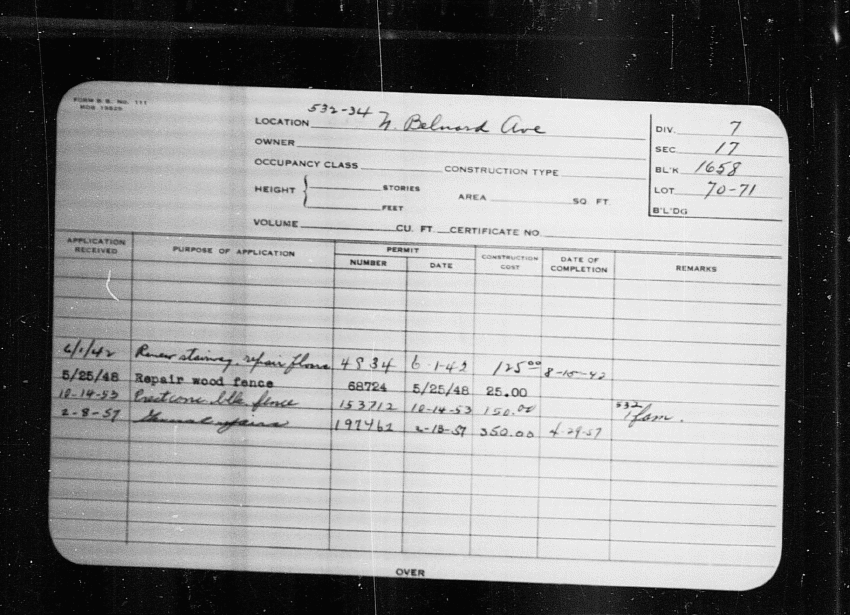 FORM B. S. No. 111
532-34
LOCATION N. Belmord Ave
DIV. 7
OWNER
SEC 17
OCCUPANCY CLASS CONSTRUCTION TYPE
BL'K 1658
HEIGHT { STORIES
FEET
AREA SQ. FT.
LOT 70-71
B'L'DG
VOLUME CU. FT. CERTIFICATE NO.
APPLICATION RECEIVED PURPOSE OF APPLICATION PERMIT NUMBER DATE CONSTRUCTION COST DATE OF COMPLETION REMARKS
6/1/42 Renew stairway, repair floors 4834 6-1-42 125.00 8-15-42
5/25/48 Repair wood fence 68724 5/25/48 25.00
10-14-53 Erect conc. blk. fence 153712 10-14-53 150.00 532 1 fam.
2-8-57 General repairs 197462 2-18-57 350.00 4-29-57
OVER